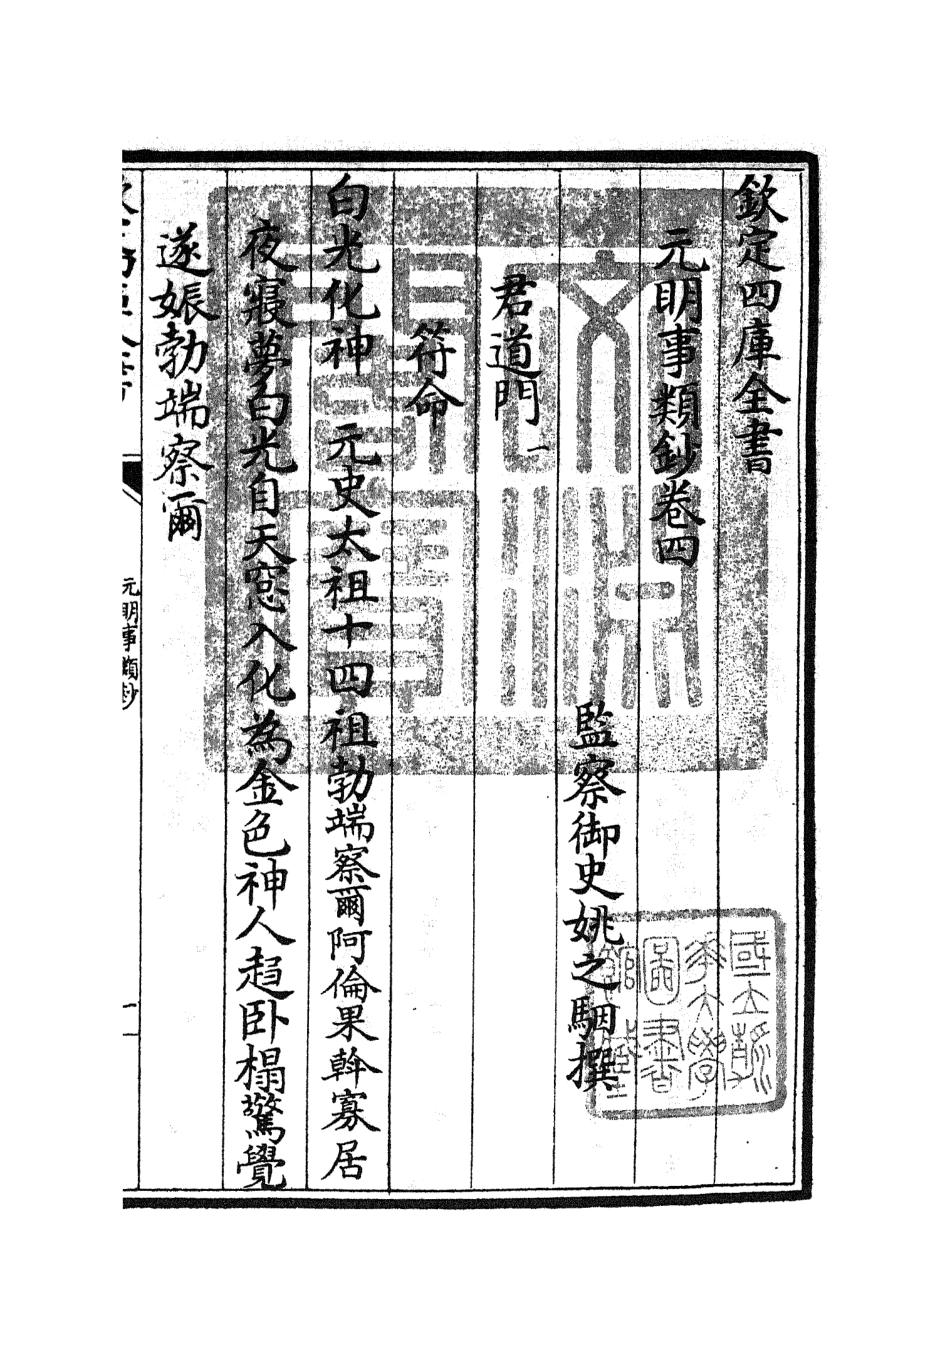 欽定四庫全書
元明事類鈔卷四
監察御史姚之駰撰
君道門一
符命
白光化神　元史太祖十四祖勃端察爾阿倫果斡寡居
夜寢夢白光自天窓入化為金色神人趨卧榻驚覺
遂娠勃端察爾
元明事類鈔
一
文淵閣寶
國立清華大學圖書館藏